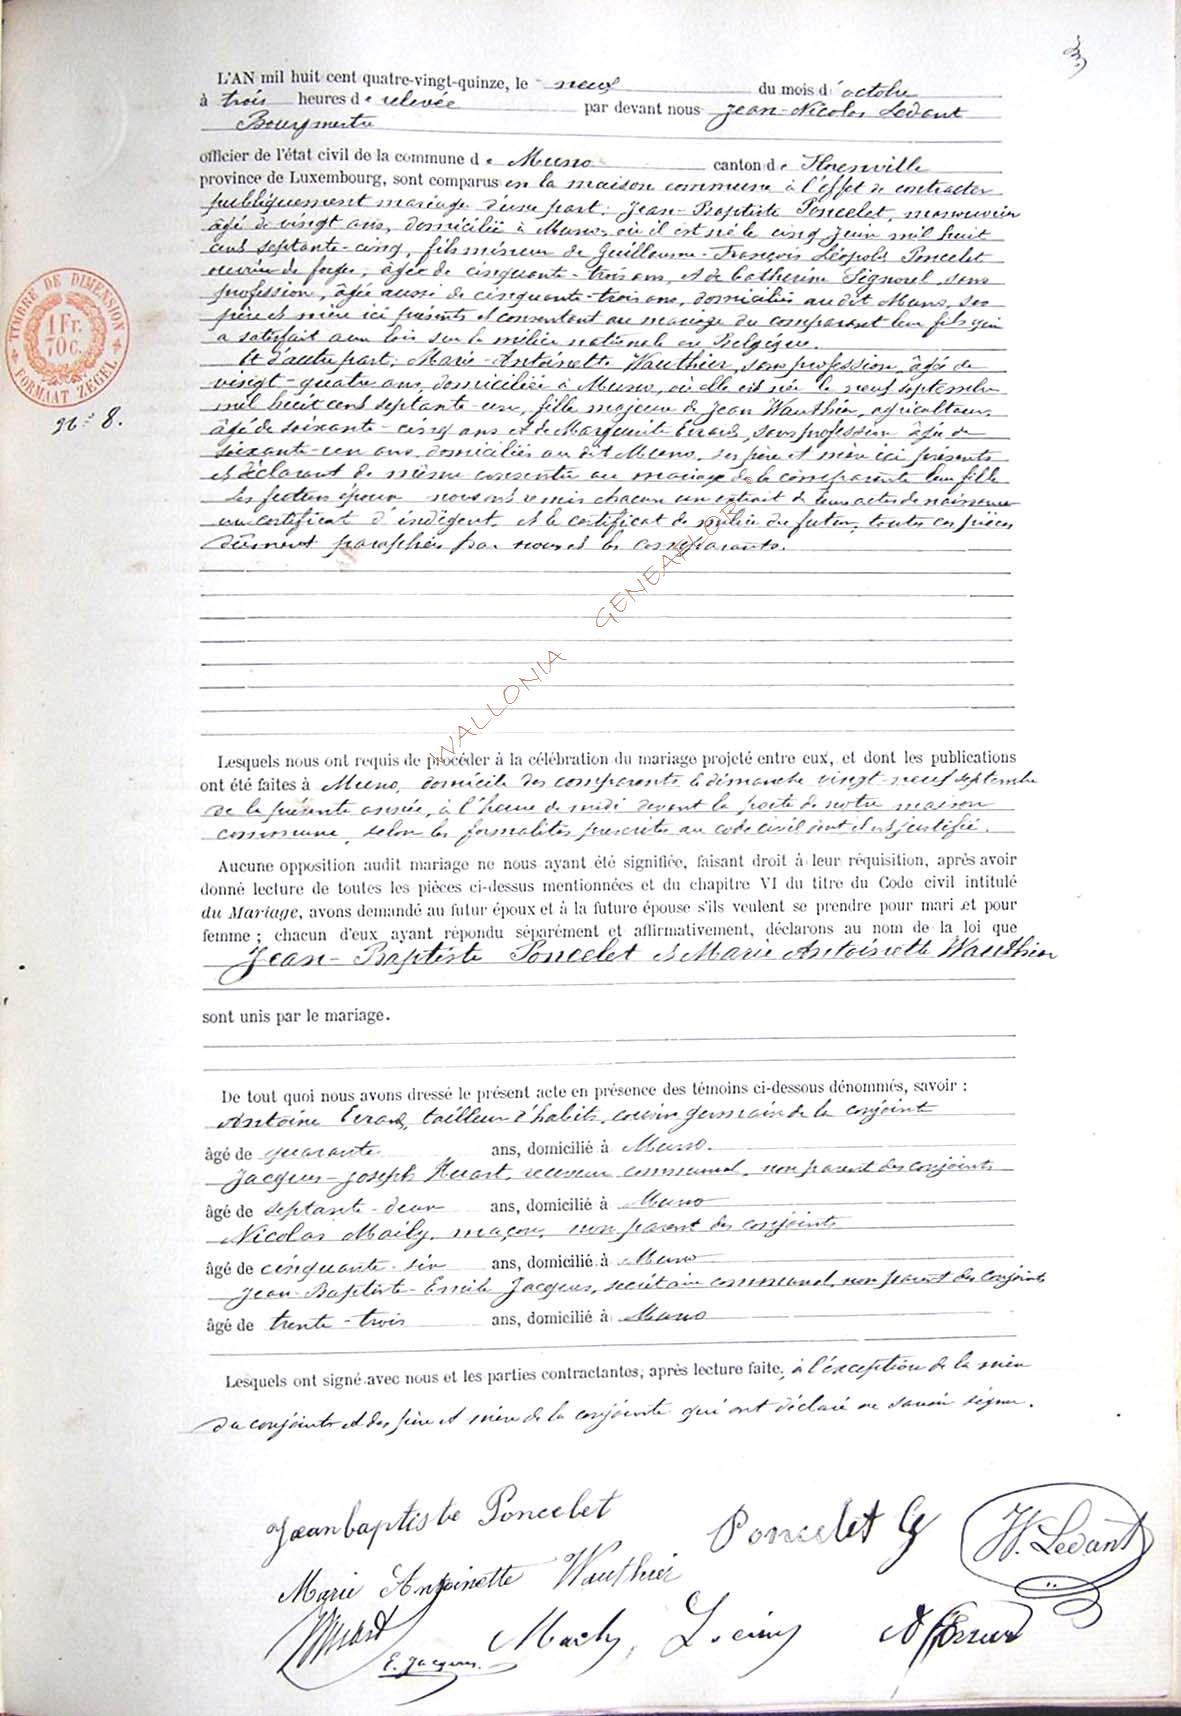 L'AN mil huit cent quatre-vingt-quinze, le neuf du mois d'octobre
à trois heures de relevée par devant nous Jean-Nicolas Ledant
Bourgmestre
officier de l'état civil de la commune de Muno canton de Florenville
province de Luxembourg, sont comparus en la maison commune à l'effet de contracter
publiquement mariage d'une part: Jean-Baptiste Poncelet, manouvrier
âgé de vingt ans, domicilié à Muno, où il est né le cinq Juin mil huit
cent septante-cinq, fils mineur de Guillaume-François Léopold Poncelet
ouvrier de forges, âgé de cinquante-trois ans, et de Catherine Signorel, sans
profession, âgée aussi de cinquante-trois ans, domiciliés au dit Muno, ses
père et mère ici présents et consentant au mariage du comparant leur fils qui
a satisfait aux lois sur la milice nationale en Belgique.
Et d'autre part: Marie-Antoinette Wauthier, sans profession, âgée de
vingt-quatre ans, domiciliée à Muno, où elle est née le neuf septembre
mil huit cent septante-un, fille majeure de Jean Wauthier, agriculteur,
âgé de soixante-cinq ans et de Marguerite Errard, sans profession âgée de
soixante-un ans, domiciliés au dit Muno, ses père et mère ici présents
et déclarant de même consentir au mariage de la comparante leur fille
Les futurs époux nous ont remis chacun un extrait de leurs actes de naissance
un certificat d'indigent, et le certificat de milice du futur, toutes ces pièces
dûment paraphées par nous et les comparants.
Lesquels nous ont requis de procéder à la célébration du mariage projeté entre eux, et dont les publications
ont été faites à Muno, domicile des comparants le dimanche vingt-neuf septembre
de la présente année, à l'heure de midi devant la porte de notre maison
commune, selon les formalités prescrites au code civil dont il est justifié.
Aucune opposition audit mariage ne nous ayant été signifiée, faisant droit à leur réquisition, après avoir
donné lecture de toutes les pièces ci-dessus mentionnées et du chapitre VI du titre du Code civil intitulé
du Mariage, avons demandé au futur époux et à la future épouse s'ils veulent se prendre pour mari et pour
femme ; chacun d'eux ayant répondu séparément et affirmativement, déclarons au nom de la loi que
Jean-Baptiste Poncelet et Marie Antoinette Wauthier
sont unis par le mariage.
De tout quoi nous avons dressé le présent acte en présence des témoins ci-dessous dénommés, savoir :
Antoine Errard, tailleur d'habits, cousin germain de la conjointe
âgé de quarante ans, domicilié à Muno.
Jacques-Joseph Huart, receveur communal, non parent des conjoints
âgé de septante-deux ans, domicilié à Muno
Nicolas Maily, maçon, non parent des conjoints
âgé de cinquante-six ans, domicilié à Muno
Jean-Baptiste-Emile Jacques, secrétaire communal, non parent des conjoints
âgé de trente-trois ans, domicilié à Muno
Lesquels ont signé avec nous et les parties contractantes, après lecture faite, à l'exception de la mère
du conjoint et des père et mère de la conjointe qui ont déclaré ne savoir signer.
Jean baptiste Poncelet
Poncelet G
N. Ledant
Marie Antoinette Wauthier
Huart
E. Jacques.
Maily
TIMBRE DE DIMENSION
1 Fr.
70 c.
FORMAAT ZEGEL
N° 8.
WALLONIA GENEAFLOR